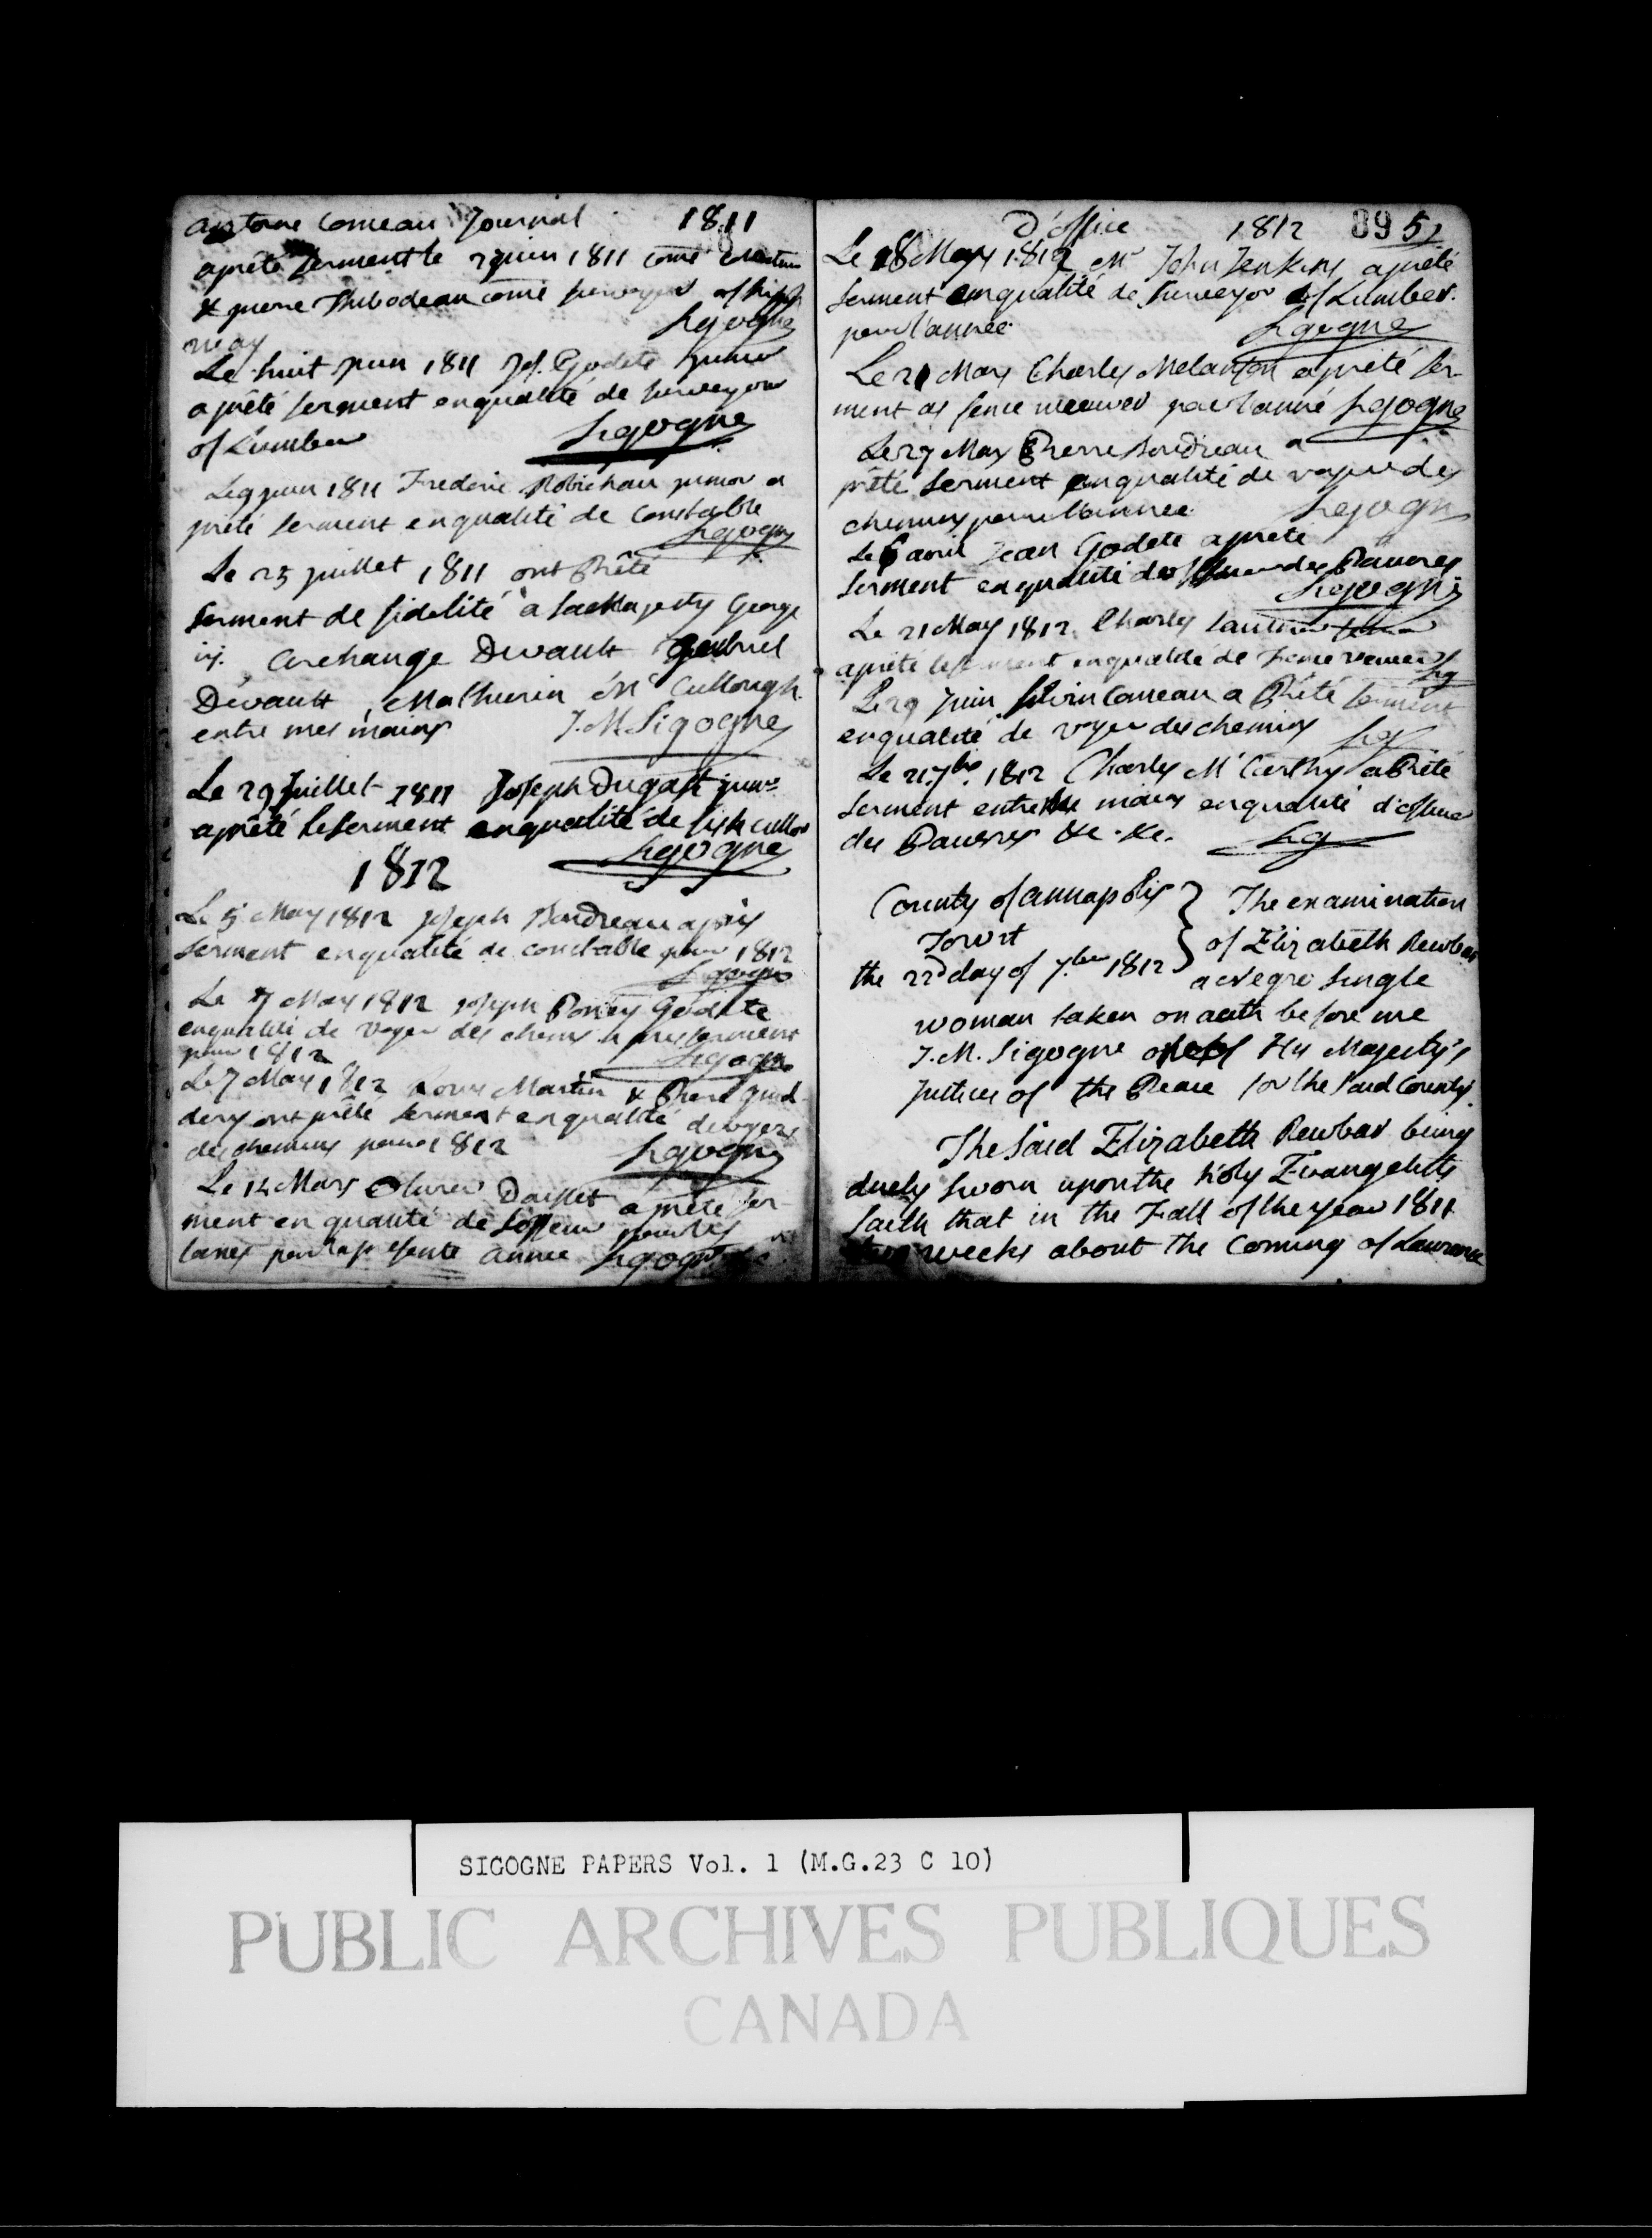 antoine Comeau Journal 1811
a prêté serment le 2 juin 1811 comē
& pierre Thibodeau comē surveyor of high
way Sigogne
Le huit juin 1811 Jos. Godete junior
a prêté serment en qualité de surveyor
of Lumber Sigogne
Le 9 juin 1811 Frederic Robichau junior a
prêté serment en qualité de Constable
Sigogne
Le 25 juillet 1811 ont Prêté
serment de fidelité a sa Majesty George
iij. Archange Devault Gabriel
Devault, Mathurin Mc Cullough
entre mes mains J. M. Sigogne
Le 29 Juillet 1811 Joseph Dugast junr
a prêté le serment en qualité de fish cullor
Sigogne
1812
Le 5 May 1812 Joseph Boudreau a pris
serment en qualité de constable pour 1812
Sigogne
Le 7 May 1812 Joseph Godete
en qualité de Voyer des chemins a pris serment
pour 1812 Sigogne
Le 7 May 1812 Louis Martin & Pierre
ont prêté serment en qualité de voyers
des chemins pour 1812 Sigogne
Le 12 Mars Olivier Doucet a prêté ser-
ment en qualité de pour les
pour la presente année Sigogne
D'office 1812 89 5
Le 18 May 1812 Mr John Jenkins a preté
serment en qualité de Surveyor of Lumber.
pour l'année. Sigogne
Le 21 Mars Charles Melanson a prêté ser-
ment as fence viewer pour l'année Sigogne
Le 29 May Pierre Boudreau a
prêté serment en qualité de voyeur des
chemins pour l'année Sigogne
Le 6 avril Jean Godete a prêté
serment en qualité des Pauvres
Sigogne
Le 21 May 1812. Charles
a prêté le serment en qualité de Fence viewer Sig
Le 29 Juin Silvin Comeau a Prêté serment
en qualité de voyer des chemins Sig
Le 21 7bre 1812 Charles Mc Carthy a Prêté
serment entre mes mains en qualité d'
des Pauvres &c. &c. Sig
County of annapolis } The examination
To wit } of Elizabeth Rewbar
the 22d day of 7ber 1812 } a Negro Single
woman taken on oath before me
J. M. Sigogne one of His Majesty's
justices of the Peace for the said County.
The said Elizabeth Rewbar being
duely sworn upon the holy Evangelists
saith that in the Fall of the year 1811
weeks about the Coming of Lawrence
SIGOGNE PAPERS Vol. 1 (M.G.23 C 10)
PUBLIC ARCHIVES PUBLIQUES
CANADA